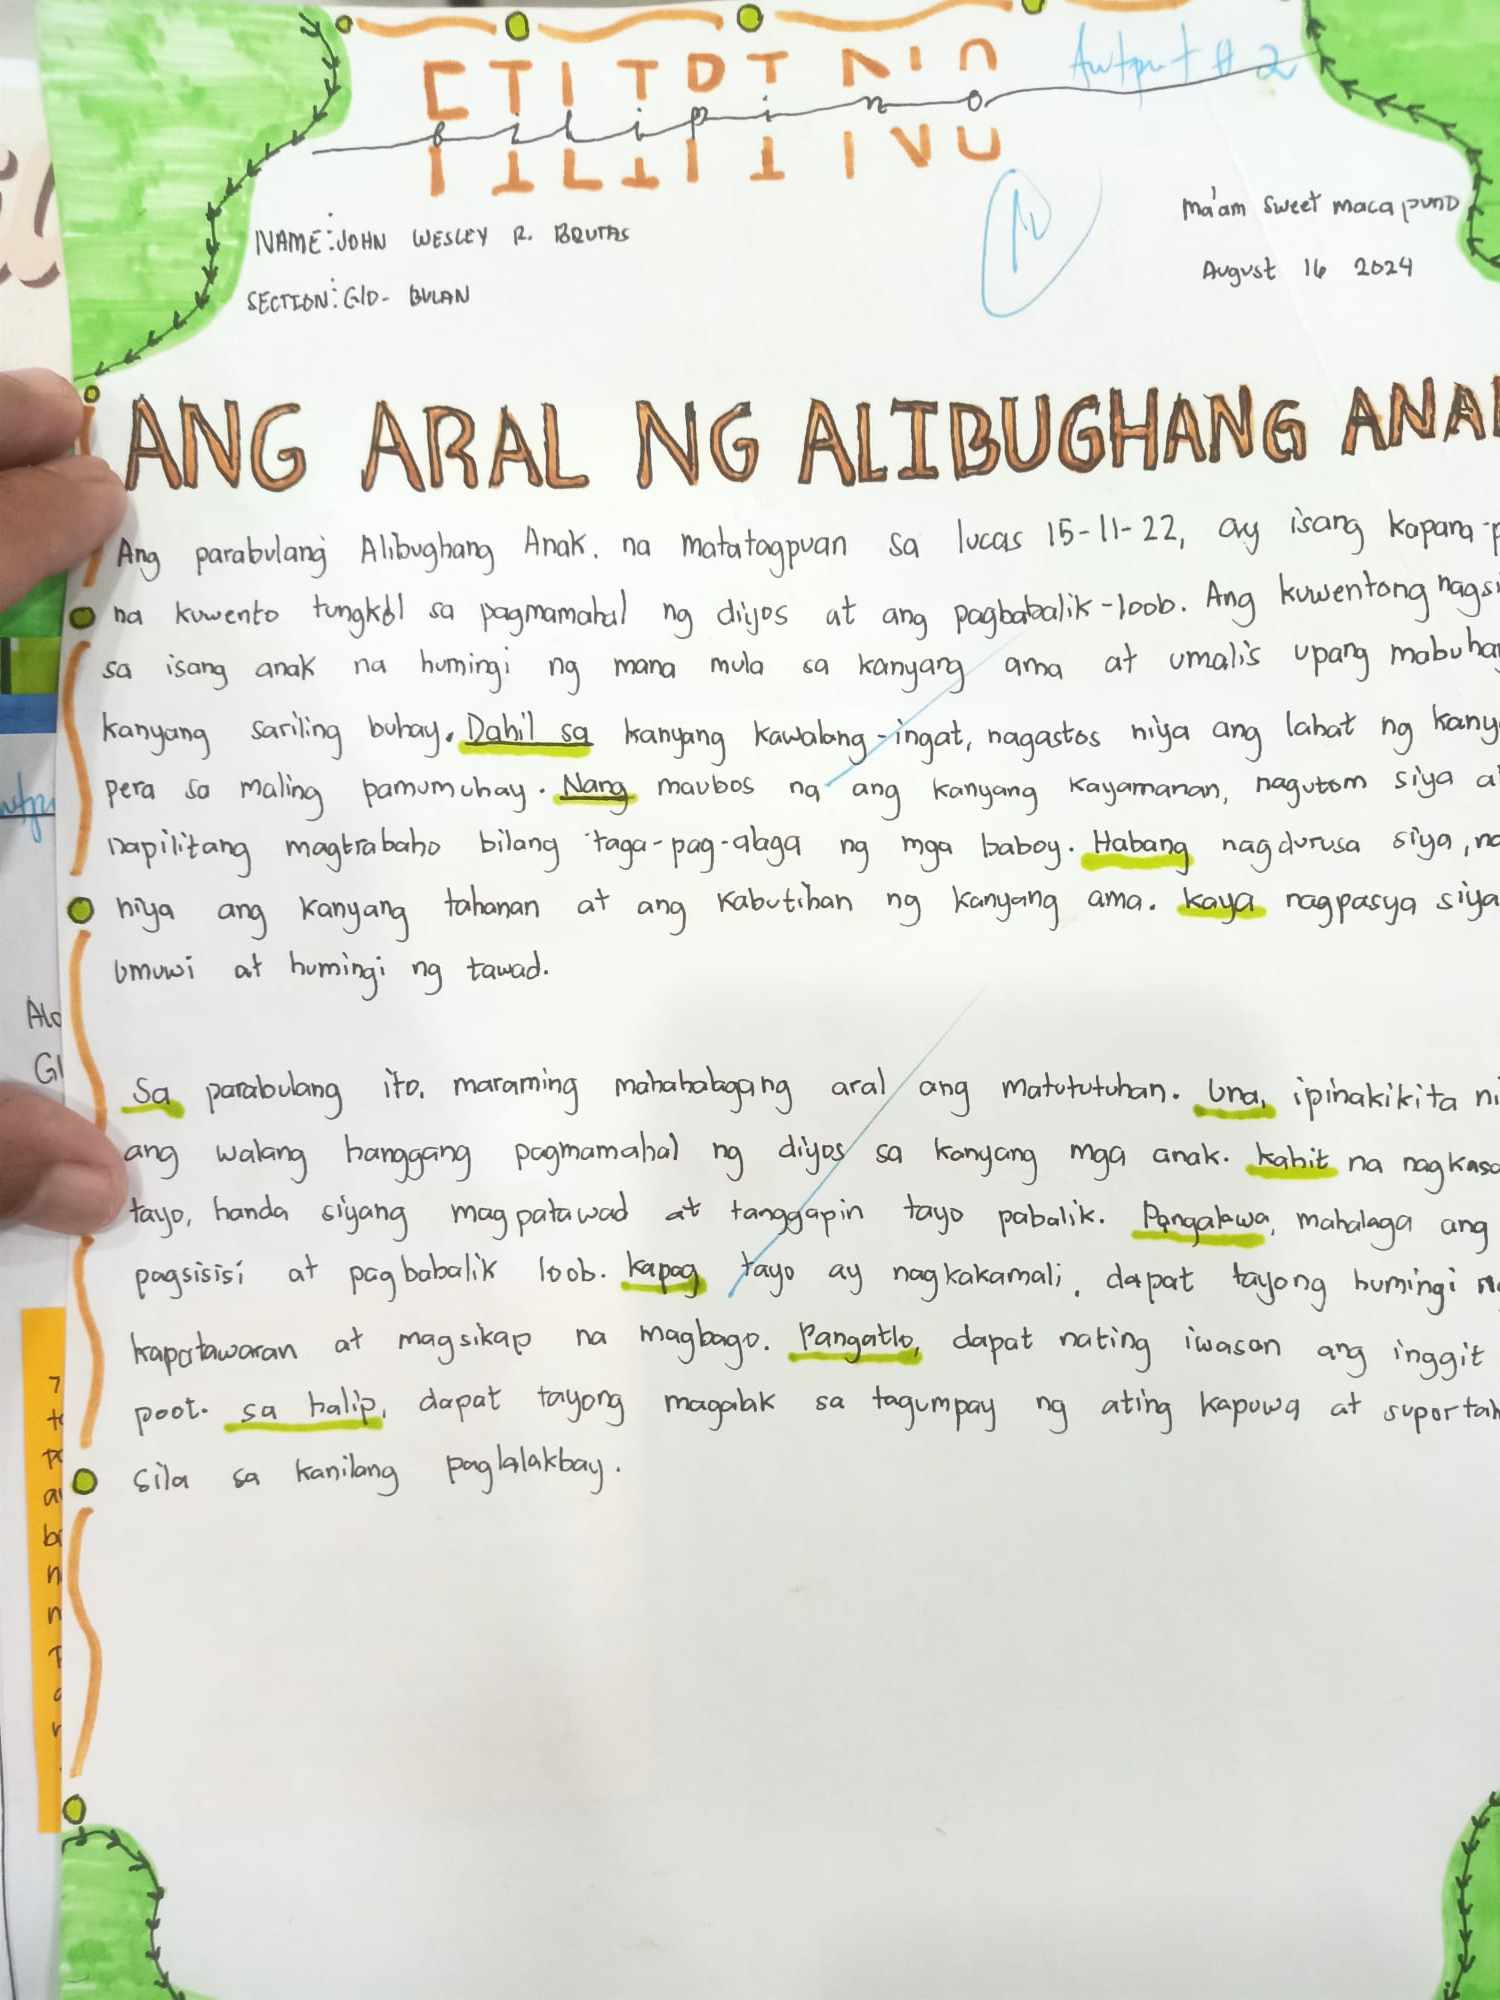 Filipino
Awtput # 2
10
NAME: JOHN WESLEY R. BRUTAS
Ma'am Sweet Macapuno
SECTION: G10- BULAN
August 16 2024
ANG ARAL NG ALIBUGHANG ANAK
Ang parabulang Alibughang Anak. na matatagpuan sa lucas 15-11-22, ay isang kapana-p
na kuwento tungkol sa pagmamahal ng diyos at ang pagbabalik-loob. Ang kuwentong nagsi
sa isang anak na humingi ng mana mula sa kanyang ama at umalis upang mabuhay
kanyang sariling buhay. Dahil sa kanyang kawalang-ingat, nagastos niya ang lahat ng kanya
pera sa maling pamumuhay. Nang maubos na ang kanyang kayamanan, nagutom siya a
napilitang magtrabaho bilang taga-pag-alaga ng mga baboy. Habang nagdurusa siya, na
niya ang kanyang tahanan at ang kabutihan ng kanyang ama. kaya nagpasya siya
umuwi at humingi ng tawad.
Sa parabulang ito. maraming mahahalagang aral ang matututuhan. Una, ipinakikita ni
ang walang hanggang pagmamahal ng diyos sa kanyang mga anak. kahit na nagkasa
tayo, handa siyang magpatawad at tanggapin tayo pabalik. Pangalawa, mahalaga ang
pagsisisi at pagbabalik loob. kapag tayo ay nagkakamali, dapat tayong humingi ng
kapatawaran at magsikap na magbago. Pangatlo, dapat nating iwasan ang inggit
poot. sa halip, dapat tayong magalak sa tagumpay ng ating kapuwa at suportah
sila sa kanilang paglalakbay.